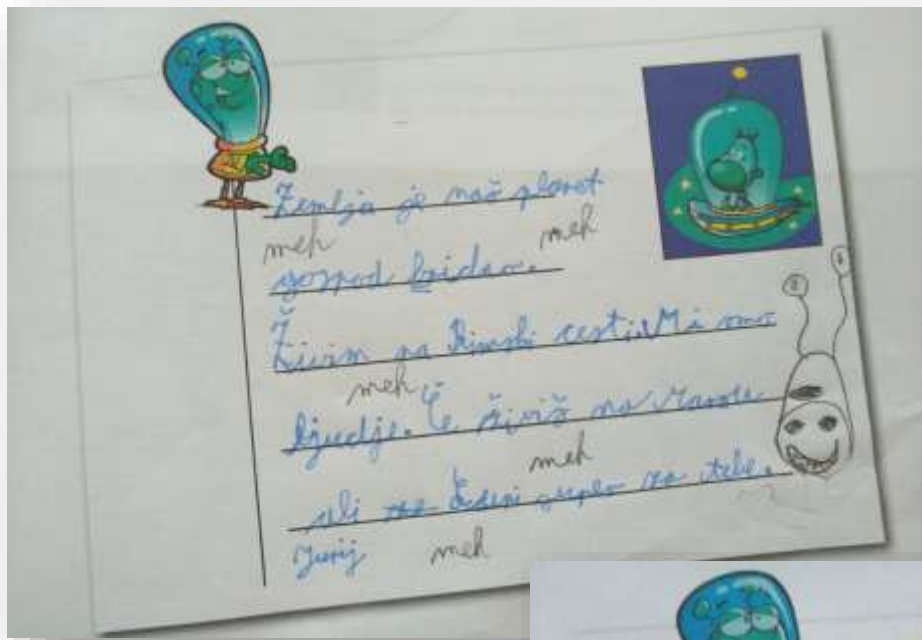 Zemlja je naš planet
meh meh
gospod
Živim na Rimski cesti. Mi smo
meh
ljudje. Če živiš na Marsu
meh
ali za tebe.
Jurij meh